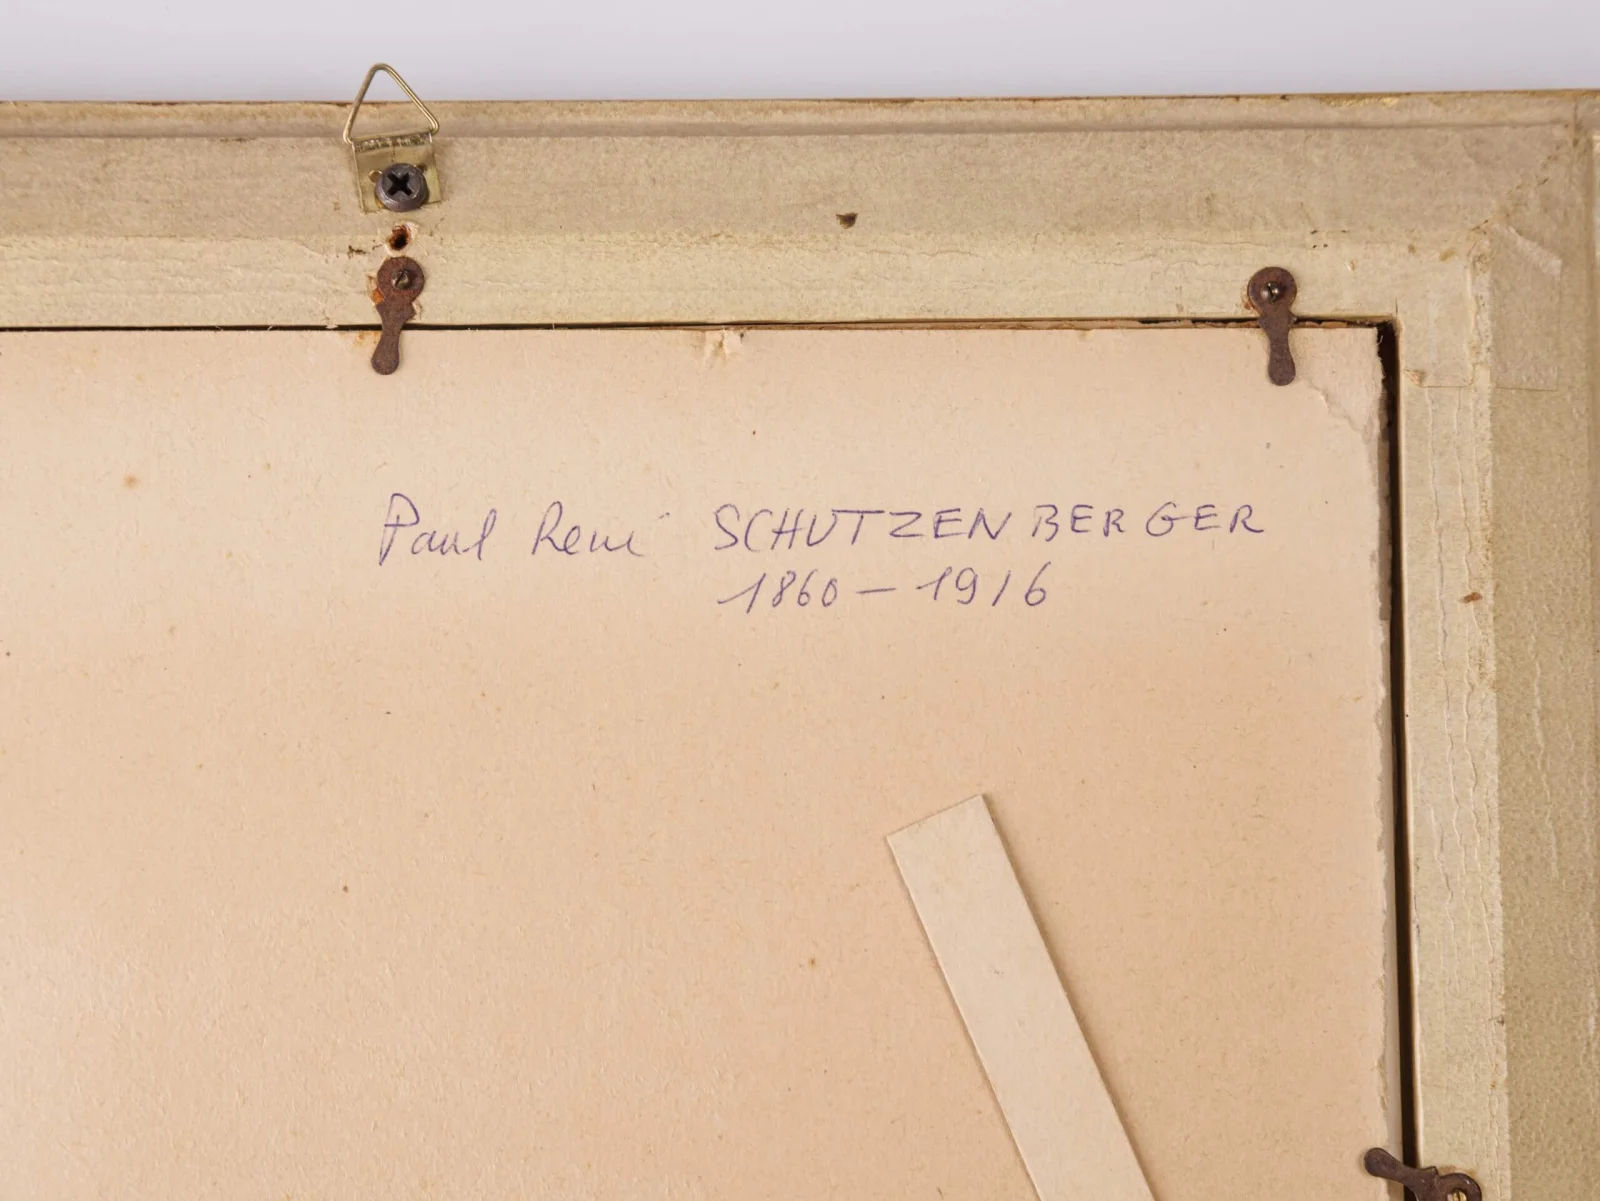 Paul René SCHUTZENBERGER
1860 – 1916